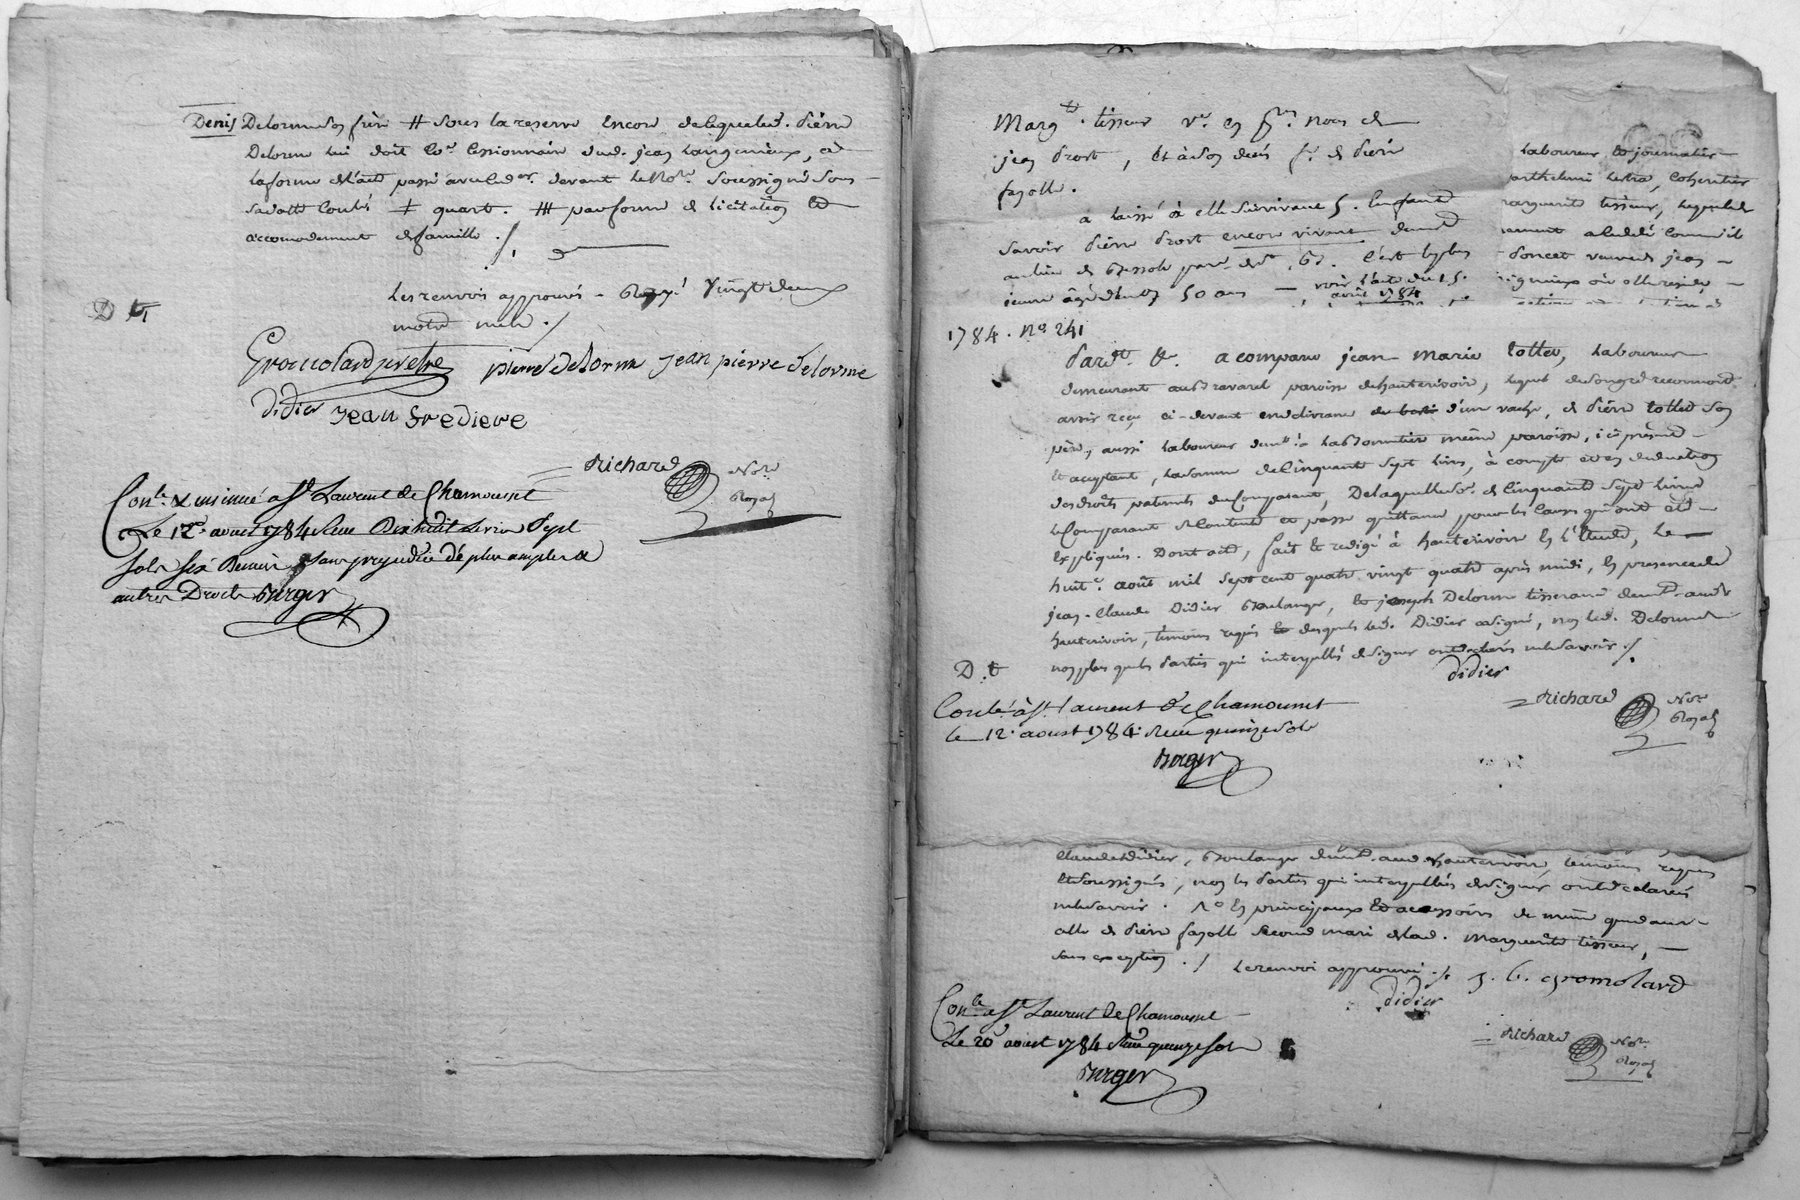 Denis Delorme son frère # sous la reserve encore de laquelle led. Pierre
Delorme lui doit co.e cessionnaire dud. jean Langenieux, et
la forme de l'acte passé avec led er. devant le No.re soussigné sous
sa datte Contlé ‡ quart. ## par forme de licitation et
accomodement de famille ./.
Les renvois approuvés - Rayé vingt deux
mots nuls ./
D t
Gromolard prêtre pierre delorme jean pierre delorme
didier jean frediere
Richard No.re
Royal
Con.lé & insinué a St. Laurent de Chamousset
Le 12e. aoust 1784 Reçu Dix huit Livres Sept
sols six Deniers Sans prejudice de plus amples &
autres Droits Berger
Marg.te tisseur v.e en p.res noces de
jean Drost, et à son decès f.e de Pierre
fayolle.
a laissé à elle Survivans 5. Enfants
Savoir Pierre Drost encore vivant
jeune âgé de 50 ans — voir l'acte du 15.
avril 1784
laboureur et journalier
barthelemi Lestra, Coheritier
marguerite tisseur, lequel
doncet veuve de jean
1784. N.o 241
Pard.t &c. a comparu jean marie Cottet, Laboureur
demeurant au Travarel paroisse de hauterivoir, lequel de son gré reconnoit
avoir reçu ci-devant en delivrance d'une vache, de Pierre Cottet son
père, aussi Laboureur dem.t à même paroisse, ici présent
et acceptant, la somme de Cinquante Sept livres, à compte et en deduction
des droits paternels du Comparant, De laquelle So.e de Cinquante Sept livres
le Comparant se Contente et passe quittance pour les Causes qui ont été
Expliqués. Dont acte, fait & redigé à hauterivoir En l'Etude, Le
huit.e août mil Sept cent quatre vingt quatre après midi, En presence de
jean-Claude Didier Boulanger, et joseph Delorme tisserand dem.t aud.
hauterivoir, temoins requis desquels led. Didier a signé, non led. Delorme
non plus que les Parties qui interpellés de signer ont declarés ne le savoir ./.
D. t didier
Richard No.re
Royal
Contlé à St. Laurent de Chamousset
le 12. aoust 1784. Reçu quinze sols
Berger
Claude Didier, Boulanger dem.t aud. hauterivoir, temoins requis
et soussignés, non les Parties qui interpellées de signer ont declarées
ne le savoir. # En principaux et accessoires de même que de
celle de Pierre fayolle Second mari de lad. Marguerite tisseur,
sans exception ./ Le renvoi approuvé ./. J. C. Gromolard
didier
Richard No.re
Royal
Con.lé a St. Laurent de Chamousset
Le 20 aoust 1784 Reçu quinze sols
Berger